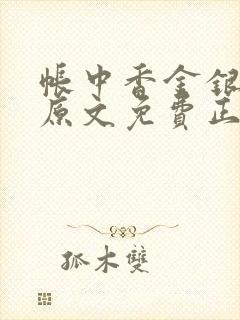 帳中香金銀
原文免費正
孤木雙